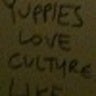 YUPPIES
LOVE
CULTURE
LIKE